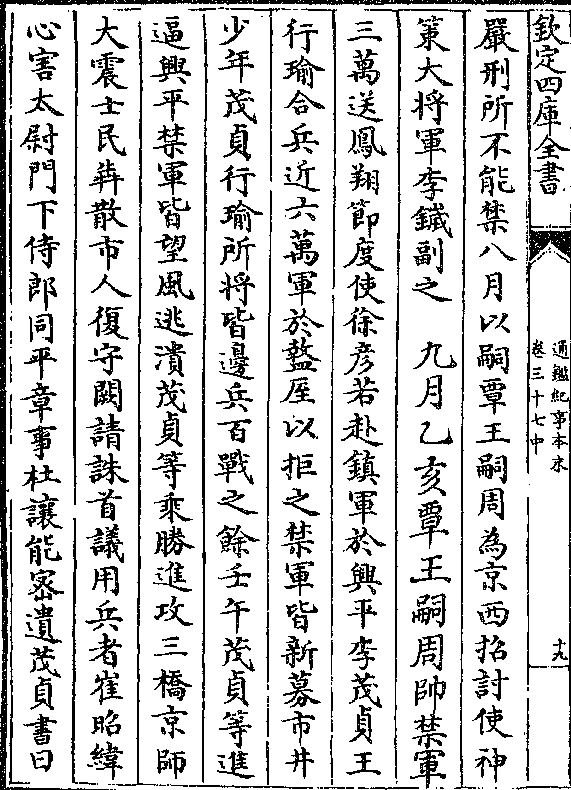 欽定四庫全書
通鑑紀事本末
卷三十七中
十九
嚴刑所不能禁八月以嗣覃王嗣周為京西招討使神
策大将軍李鐬副之　九月乙亥覃王嗣周帥禁軍
三萬送鳳翔節度使徐彦若赴鎮軍於興平李茂貞王
行瑜合兵近六萬軍於盩厔以拒之禁軍皆新募市井
少年茂貞行瑜所将皆邊兵百戰之餘壬午茂貞等進
逼興平禁軍皆望風逃潰茂貞等乘勝進攻三橋京師
大震士民奔散市人復守闕請誅首議用兵者崔昭緯
心害太尉門下侍郎同平章事杜讓能宻遺茂貞書曰